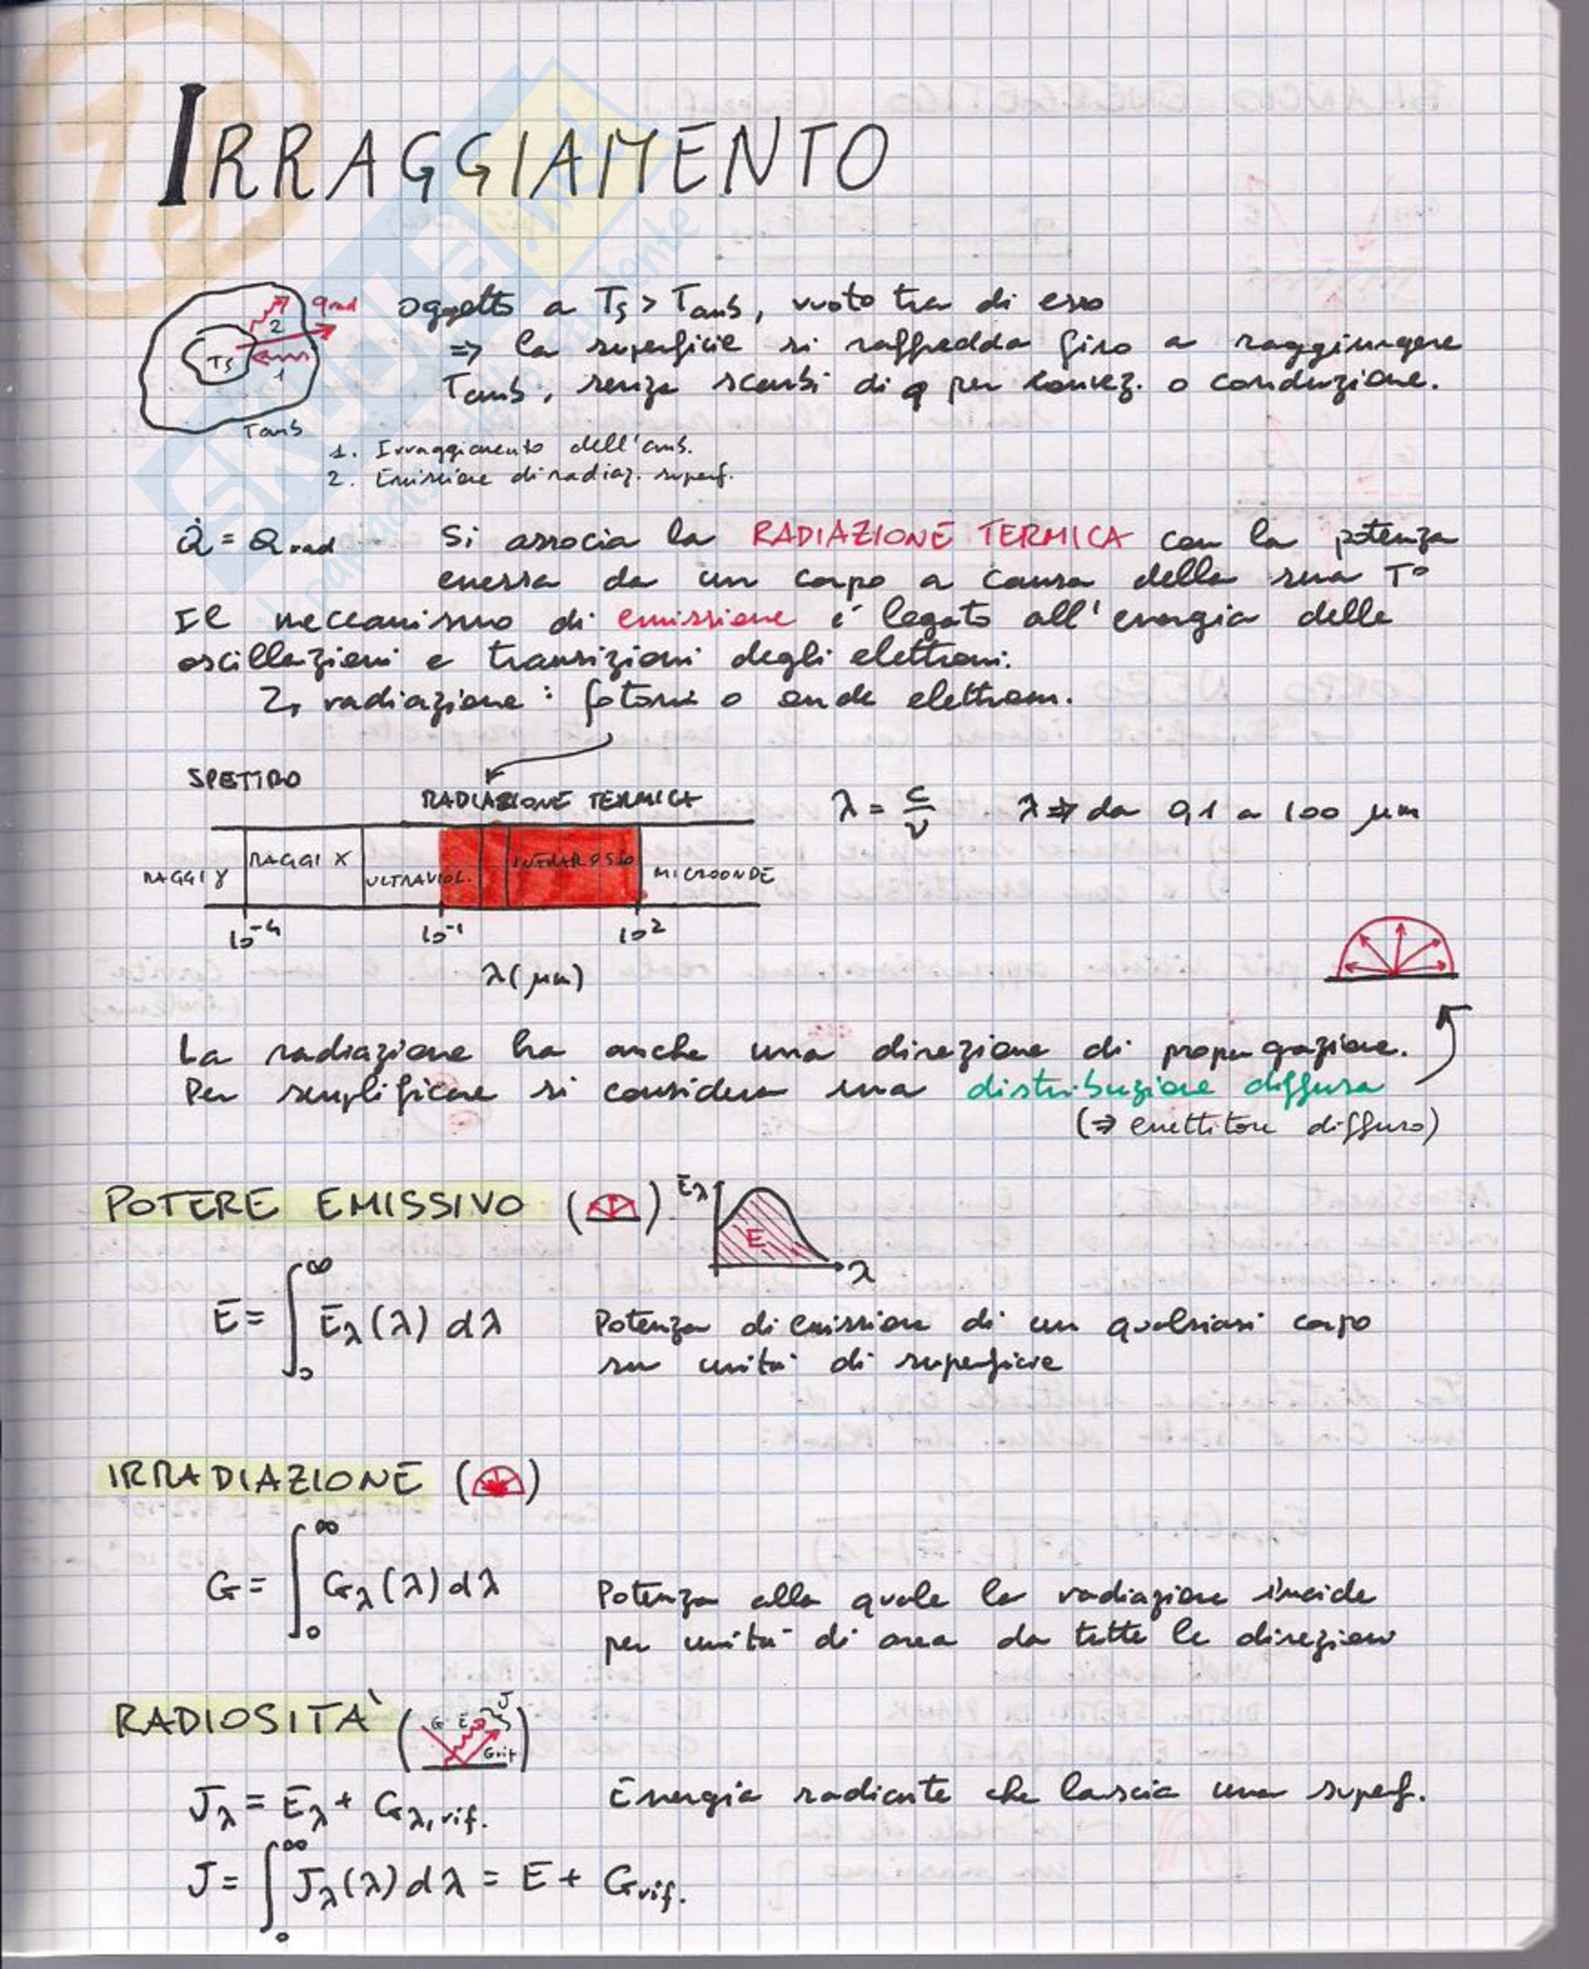 IRRAGGIAMENTO
Ts
Tamb
qrad
2
1
oggetto a Ts > Tamb, vuoto tra di esso
=> la superficie si raffredda fino a raggiungere
Tamb, senza scambi di q per convez. o conduzione.
1. Irraggiamento dell'amb.
2. Emissione di radiaz. superf.
Q̇ = Qrad Si associa la RADIAZIONE TERMICA con la potenza
emessa da un corpo a causa della sua T°
Il meccanismo di emissione è legato all'energia delle
oscillazioni e transizioni degli elettroni.
↳ radiazione: fotoni o onde elettrom.
SPETTRO
RADIAZIONE TERMICA
λ = c/ν λ => da 0,1 a 100 μm
RAGGI γ RAGGI X ULTRAVIOL. INFRAROSSO MICROONDE
10⁻⁴ 10⁻¹ 10²
λ(μm)
La radiazione ha anche una direzione di propagazione.
Per semplificare si considera una distribuzione diffusa
(=> emettitore diffuso)
POTERE EMISSIVO
Eλ
E
λ
E = ∫₀^∞ Eλ(λ) dλ Potenza di emissione di un qualsiasi corpo
su unità di superficie
IRRADIAZIONE
G = ∫₀^∞ Gλ(λ) dλ Potenza alla quale la radiazione incide
per unità di area da tutte le direzioni
RADIOSITÀ
G E J
Grif
Jλ = Eλ + Gλ,rif. Energia radiante che lascia una superf.
J = ∫₀^∞ Jλ(λ) dλ = E + Grif.